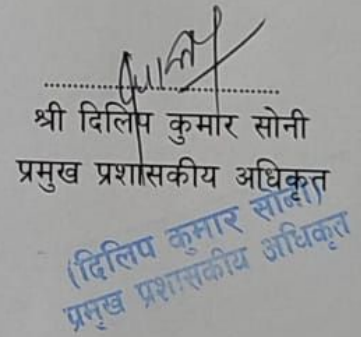 श्री दिलिप कुमार सोनी
प्रमुख प्रशासकीय अधिकृत
(दिलिप कुमार सोनी)
प्रमुख प्रशासकीय अधिकृत